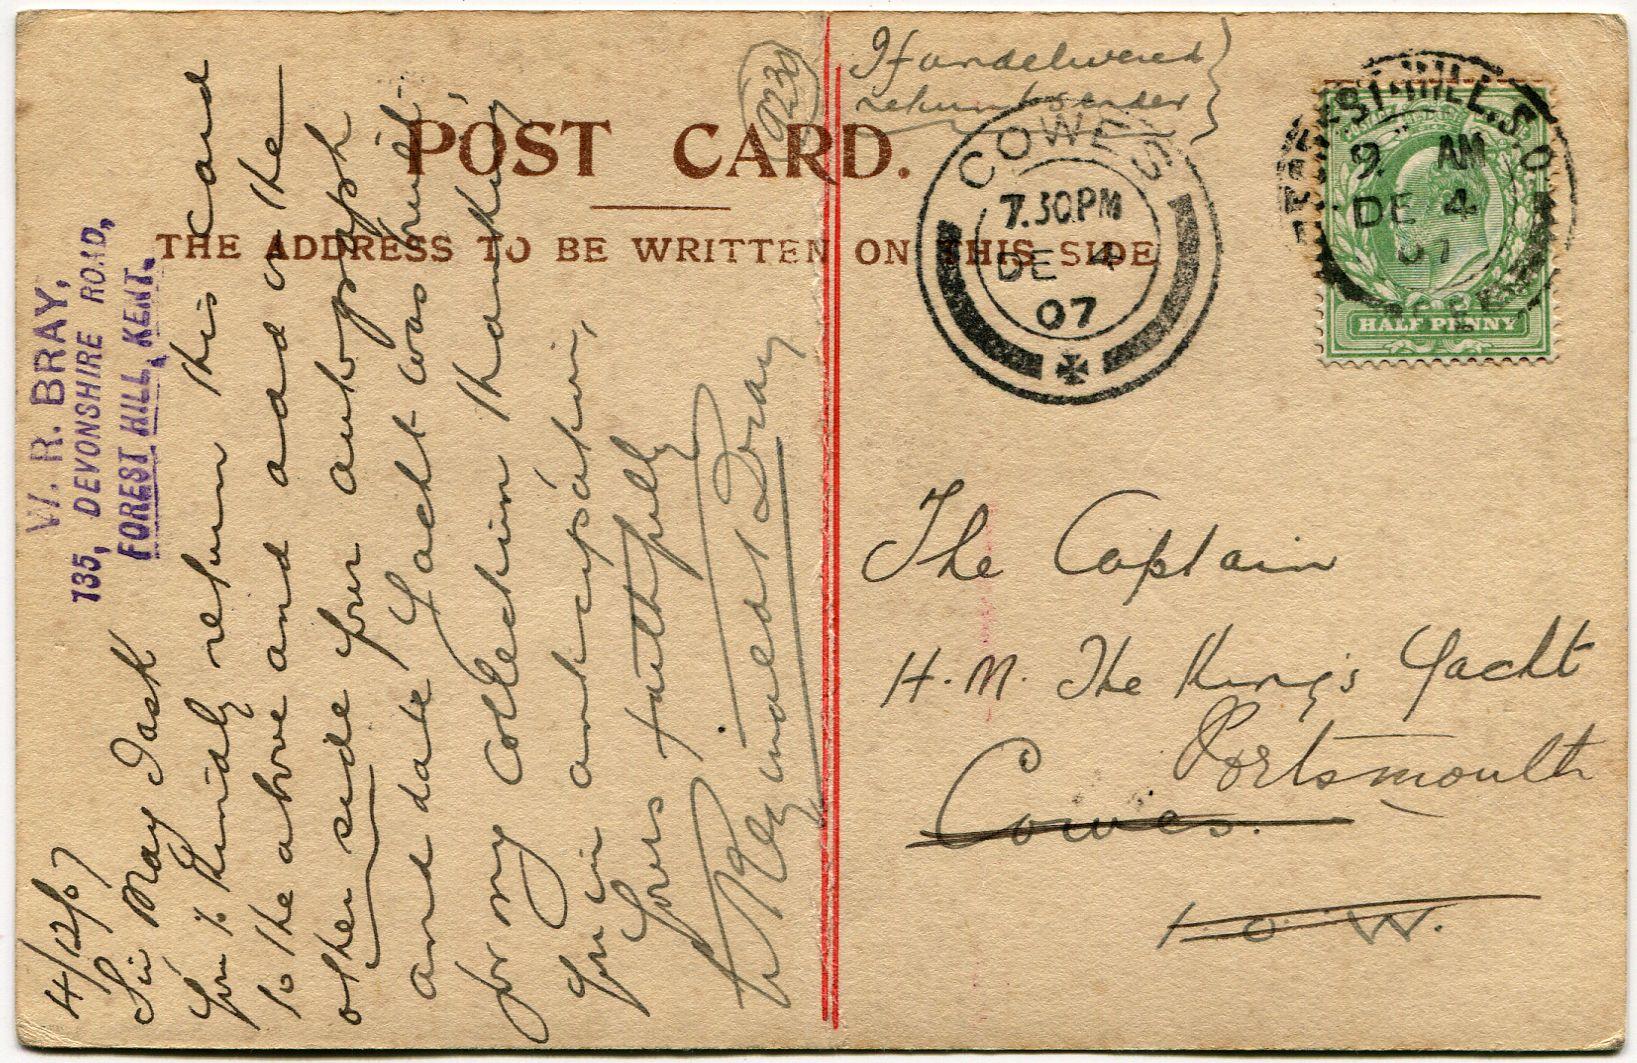 POST CARD.
THE ADDRESS TO BE WRITTEN ON THIS SIDE
9230
If undelivered
return to sender
COWES
7.30PM
DE 4
07
FOREST-HILL.S.O
9 AM
DE 4
07
HALF PENNY
W. R. BRAY,
135, DEVONSHIRE ROAD,
FOREST HILL, KENT.
4/12/07
Sir May I ask
you to kindly return this card
to the above and add on the
other side your autograph
and date Yacht was built
for my collection thanking
you in anticipation,
Yours faithfully
W Reginald Bray
The Captain
H.M. The King's Yacht
Portsmouth
Cowes.
I.O.W.